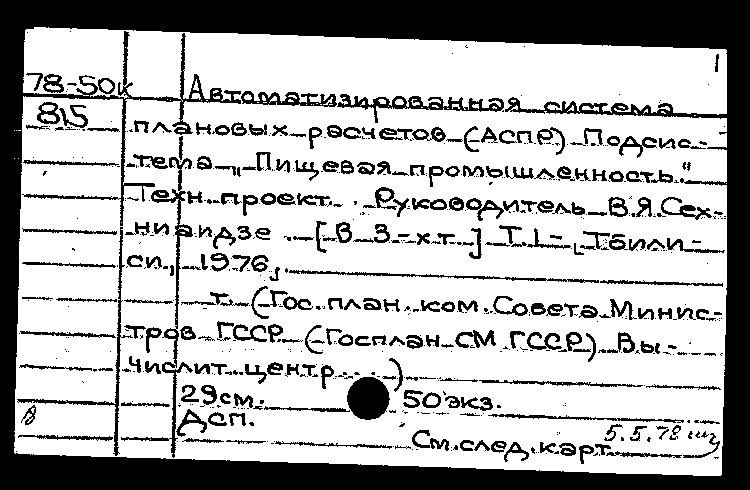 1
78-50к Автоматизированная система
815 плановых расчетов (АСПР) Подсис-
тема „Пищевая промышленность."
Техн. проект. Руководитель В.Я.Сех-
ниаидзе. [В 3-х т.] Т.1- Тбили-
си, 1976,
т. (Гос. план. ком. Совета Минис-
тров ГССР (Госплан СМ ГССР) Вы-
числит. центр...)
29см. 50 экз.
В Дсп.
См. след. карт. 5.5.78